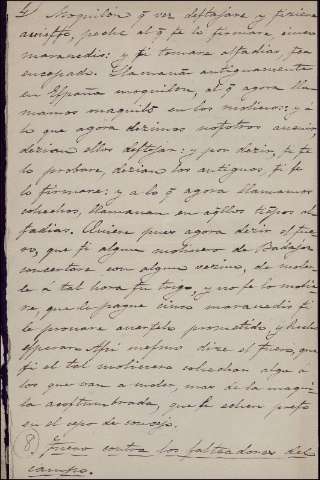 El Moquilón q̃ ver destajare, y
peche al q̃ se lo firmare, cinco
maravedis: y si tomare alfadias, sea
encepado. Llamavan antiguamente
en España moquilon, al q̃ agora lla-
mamos maquilõ en los molinos: y á
lo que agora dezimos nosotros
dezian ellos destajar: y por dezir, se te
lo probare, dezian los antiguos, si se
lo firmare: y a lo q̃ agora llamamos
cohechos, llamauan en aq̃llos tiẽpos al-
fadias. Quiere pues agora dezir el fue-
ro, que si algun molinero de Badajoz
concertare con algun vezino, de moler-
le á tal hora su trigo, y no se lo molie-
re, que le pague cinco maravedis si
le provare averselo prometido, y
esperar. Assi mesmo dize el fuero, que
si el tal molinero cohechare algo á
los que van a moler, mas de la maqui-
la acostumbrada, que le echen preso
en el cepo de concejo.
8. Fuero contra los salteadores del
campo.